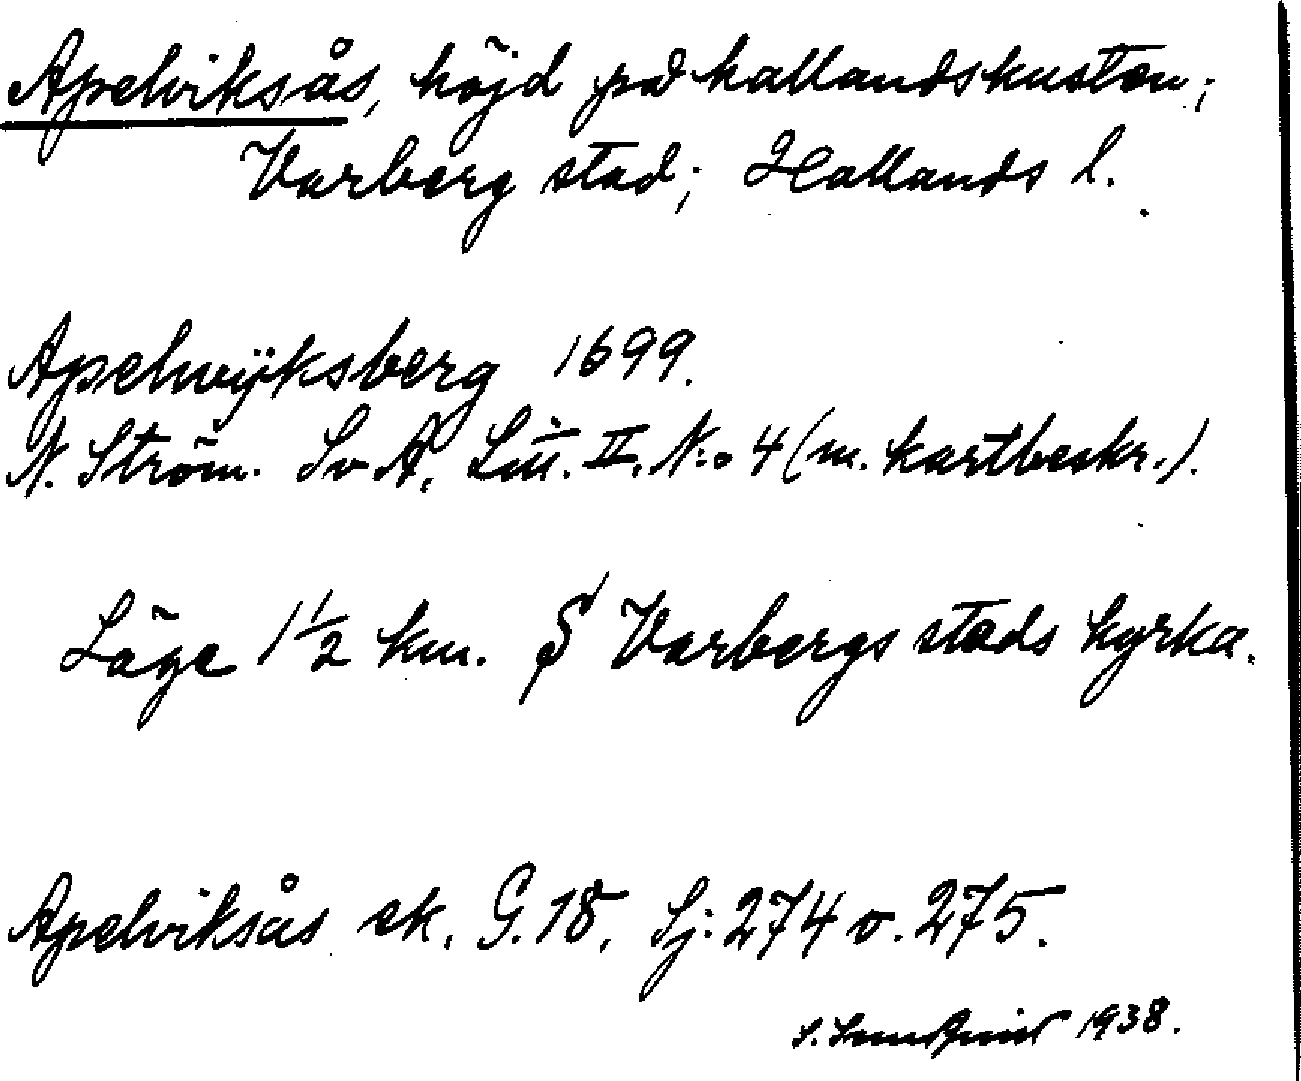 Apelviksås, höjd på hallandskusten;
Varberg stad; Hallands l.
Apelwijksberg 1699.
N. Ström. Sv A, Litt. II. N:o 4 (m. kartbeskr.).
Läge 1 1/2 km. S Varbergs stads kyrka.
Apelviksås ek. G. 18, Sj: 274 o. 275.
S. 1938.